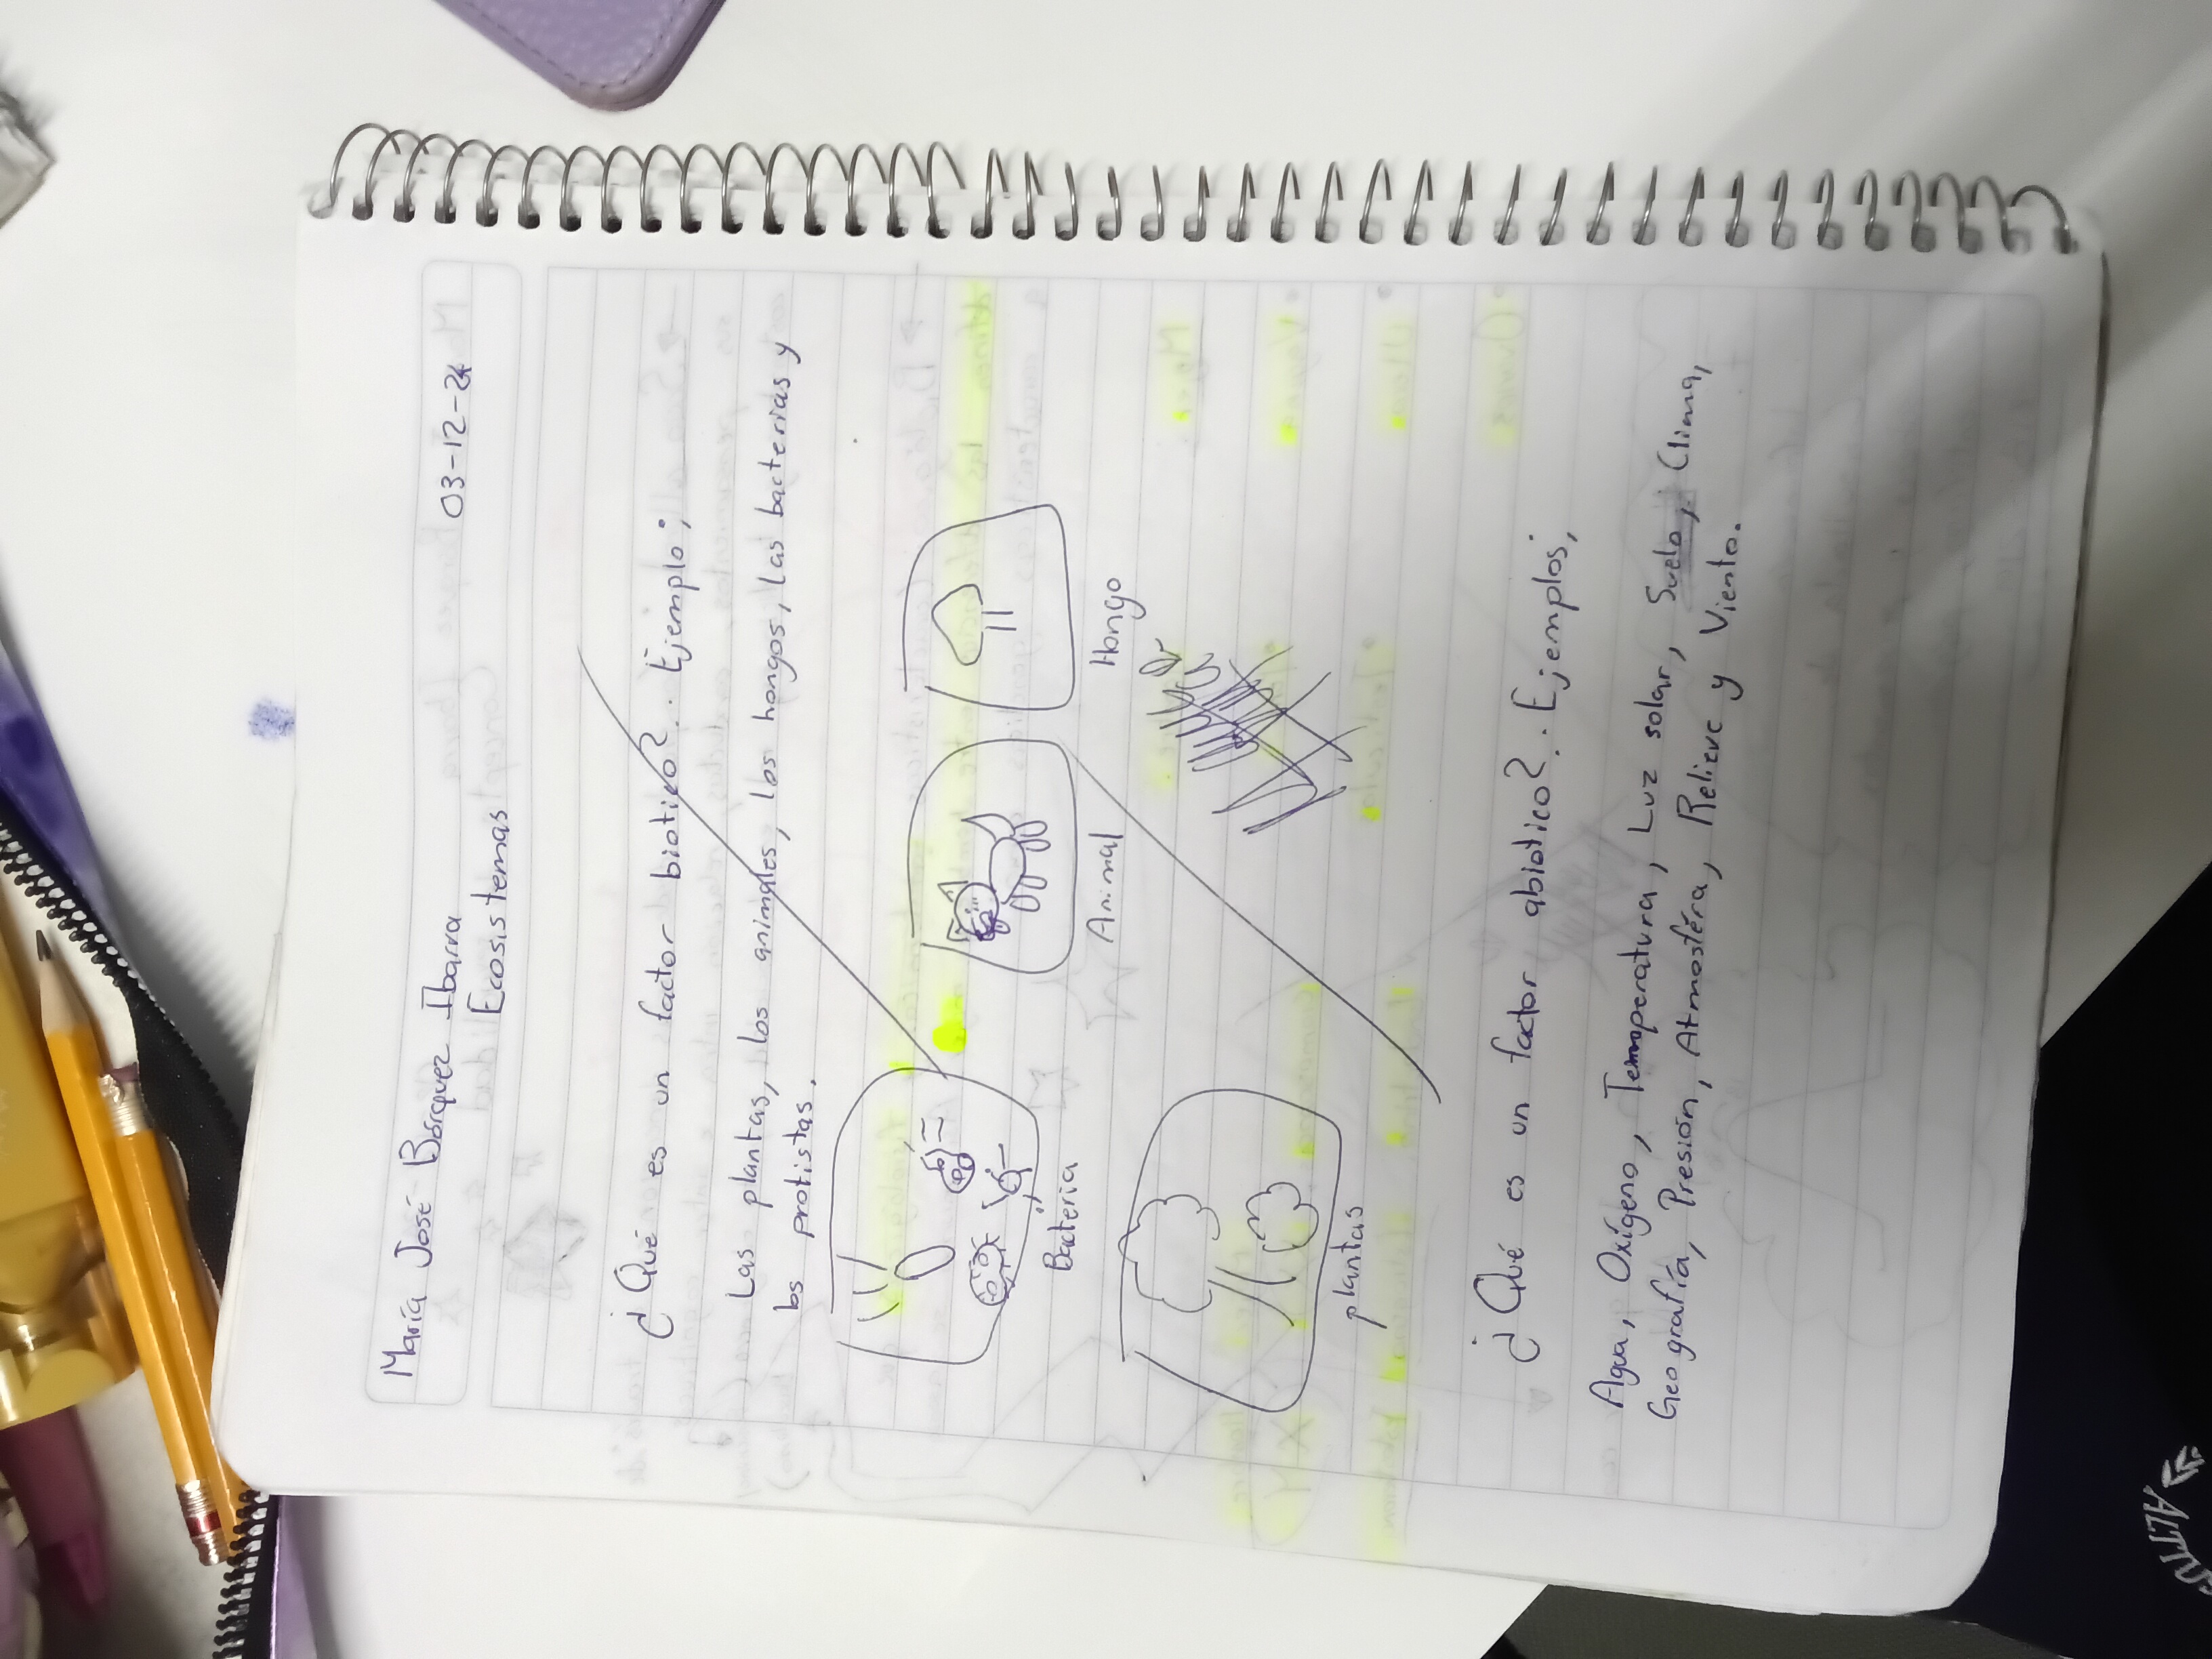 María José Bórquez Ibarra
Ecosistemas 03-12-24
¿Qué es un factor biotico?. Ejemplo;
Las plantas, los animales, los hongos, las bacterias y
los protistas.
Bacteria Animal Hongo
plantas
¿Qué es un factor abiotico?. Ejemplos;
Agua, Oxígeno, Temperatura, Luz solar, Suelo, Clima,
Geografía, Presión, Atmosféra, Relieve y Viento.